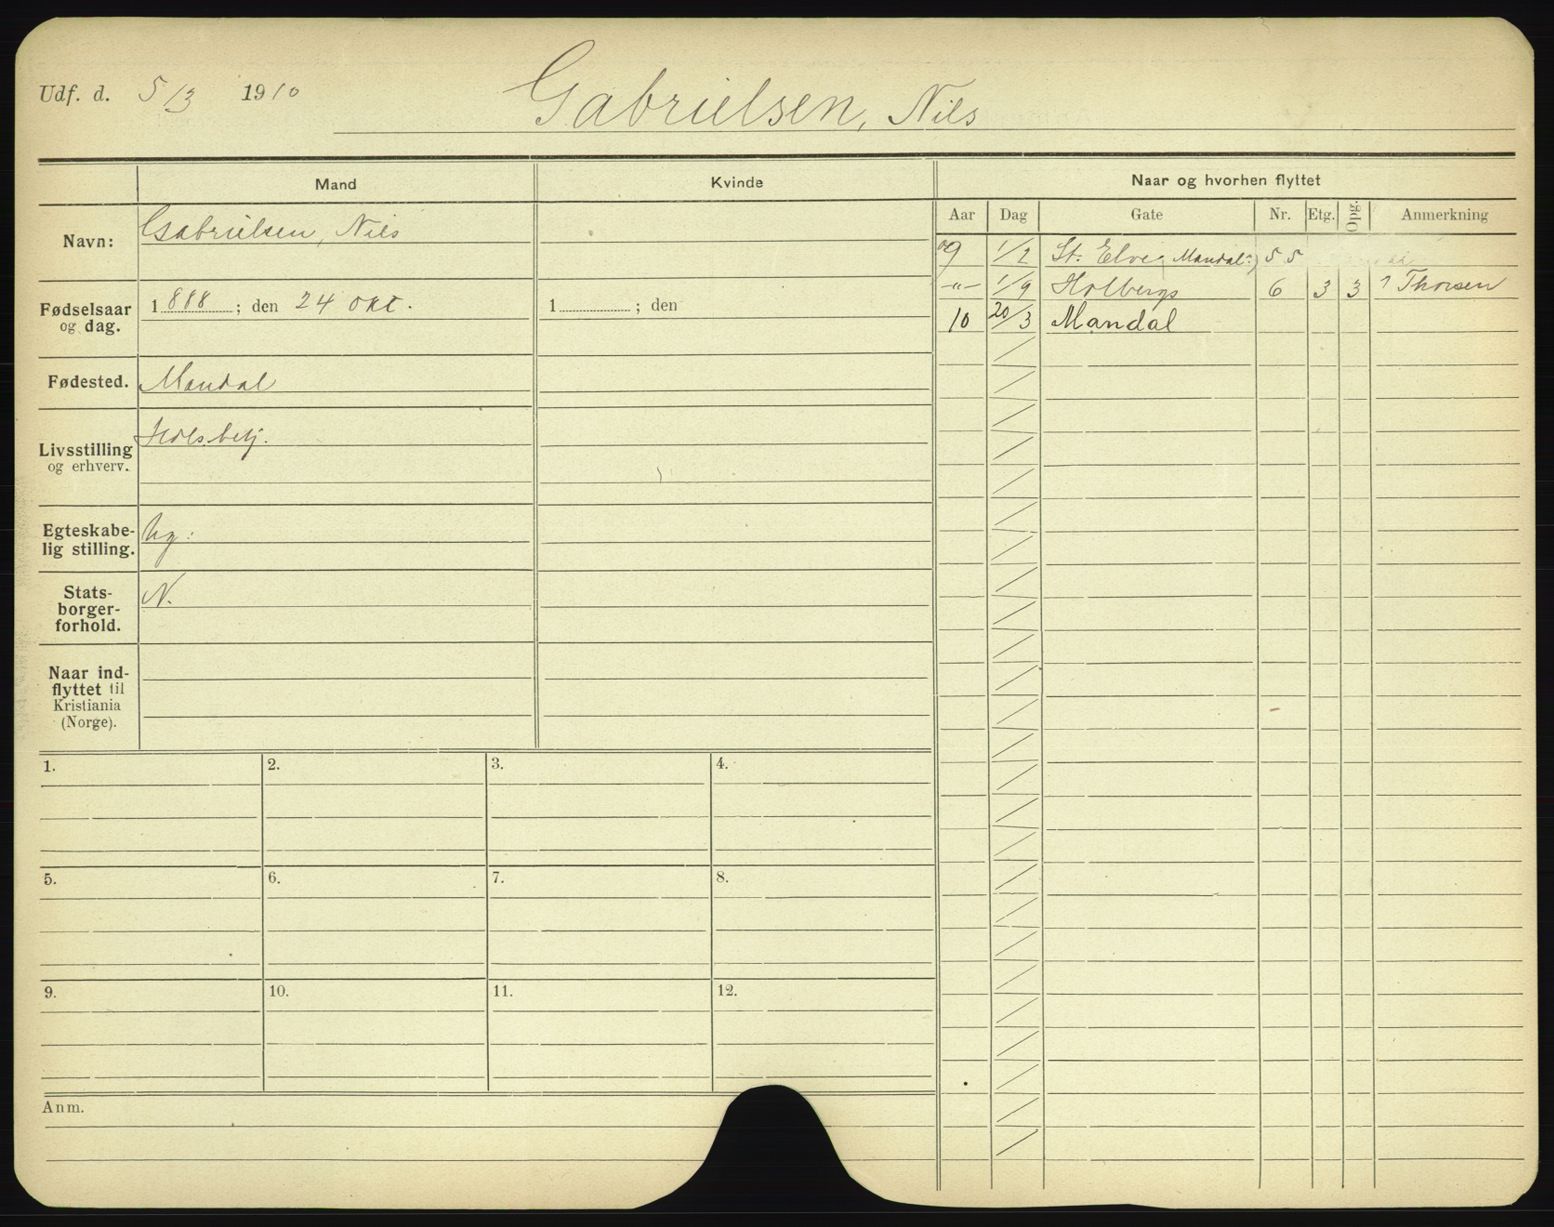 Udf. d. 5/3 1910
Gabrielsen, Nils
Mand
Kvinde
Naar og hvorhen flyttet
Aar Dag Gate Nr. Etg. Opg. Anmerkning
Navn: Gabrielsen, Nils
Fødselsaar og dag. 1888; den 24 okt. 1 ; den
Fødested. Mandal
Livsstilling og erhverv.
Egteskabe-
lig stilling. Ug:
Stats-
borger-
forhold. N.
Naar ind-
flyttet til
Kristiania
(Norge).
09 1/2 St. Elveg Mandal 55
-"- 1/9 Holbergs 6 3 3 Thorsen
10 20/3 Mandal
1. 2. 3. 4.
5. 6. 7. 8.
9. 10. 11. 12.
Anm.